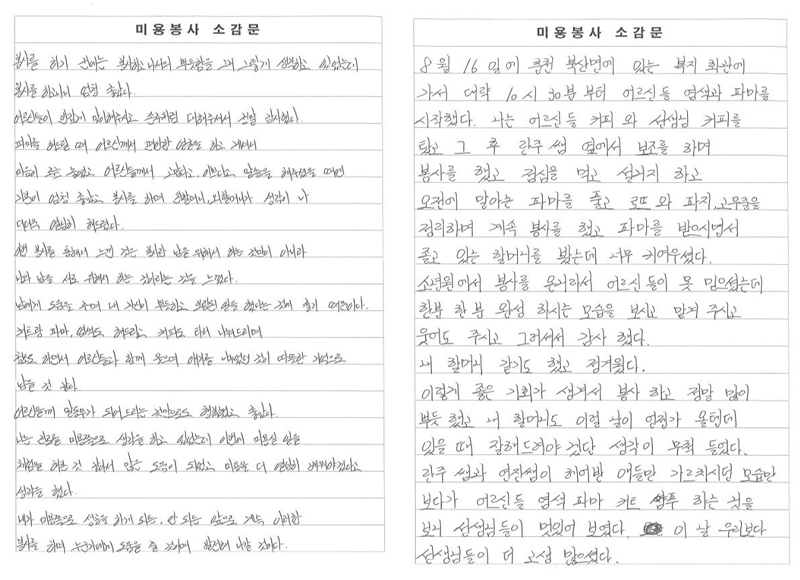 미용봉사 소감문
봉사를 하기 전에는 봉사하고나서의 뿌듯함을 그저 그렇게 생각하고 있었는데
봉사를 하고나니 엄청 좋았다.
어르신들이 반갑게 맞이해주시고 손주처럼 대해주셔서 정말 감사했다.
파마를 해드릴 때 어르신께서 편안한 얼굴을 하고 계셔서
마음이 조금 놓였고 어르신들께서 고맙다고, 이쁘다고 말씀을 해주셨을 때면
기분이 엄청 좋았고 봉사를 하며 친할머니, 외할머니가 생각이 나
더더욱 열심히 해드렸다.
이번 봉사를 통해서 느낀 것은 봉사란 남을 위해서 하는 것만이 아니라
나와 남을 서로 위해서 하는 것이라는 것을 느꼈다.
남에게 도움을 주며 내 자신이 뿌듯하고 보람된 일을 했다는 것이 좋기 때문이다.
커트랑 파마, 염색도 해드리고 커피도 타서 나눠드리며
하면서 어르신들과 함께 웃으며 얘기를 나누었던 것이 따뜻한 기억으로
남을 것 같다.
어르신들께 말동무가 되어드리는 것만으로도 행복했고 좋았다.
나는 진로를 미용쪽으로 생각을 하고 있었는데 이번에 미용실 일을
체험을 해본 것 같아서 많은 도움이 되었고 미용을 더 열심히 배워야겠다고
생각을 했다.
내가 미용쪽으로 성공을 하게 되든, 안 되든 앞으로 계속 이러한
봉사를 하며 누군가에게 도움을 줄 것이며 발전해 나갈 것이다.
미용봉사 소감문
8월 16일에 춘천 북산면에 있는 복지 회관에
가서 대략 10시 30분부터 어르신들 염색과 파마를
시작했다. 나는 어르신들 커피와 선생님 커피를
탔고 그 후 란주쌤 옆에서 보조를 하며
봉사를 했고 점심을 먹고 설거지 하고
오전에 말아논 파마를 풀고 로뜨와 파지, 고무줄을
정리하며 계속 봉사를 했고 파마를 받으시면서
졸고 있는 할머니를 봤는데 너무 귀여우셨다.
소년원에서 봉사를 온거라서 어르신들이 못 믿으셨는데
한분 한분 완성 하시는 모습을 보시고 맡겨 주시고
웃어도 주시고 그러셔서 감사 했다.
내 할머니 같기도 했고 정겨웠다.
이렇게 좋은 기회가 생겨서 봉사 하고 정말 많이
뿌듯 했고 내 할머니도 이럴 날이 언젠가 올텐데
있을 때 잘해드려야겠단 생각이 무척 들었다.
란주쌤과 연진쌤이 헤어반 애들만 가르치시던 모습만
보다가 어르신들 염색 파마 커트 샴푸 하는 것을
보니 선생님들이 멋있어 보였다. 이 날 우리보다
선생님들이 더 고생 많으셨다.